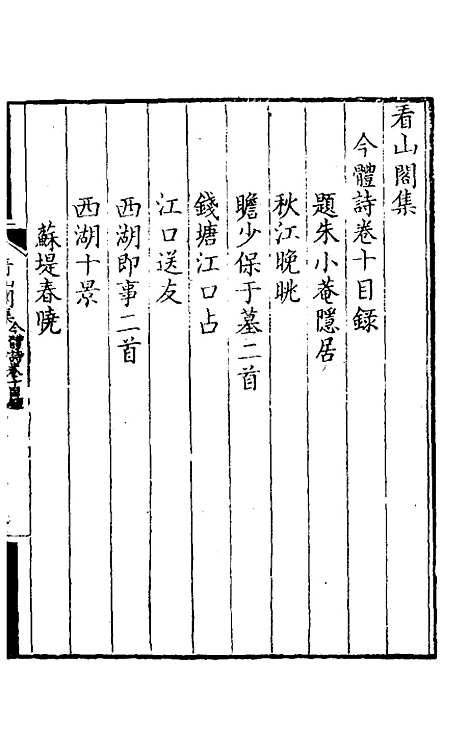 看山閣集
今體詩卷十目錄
題朱小菴隱居
秋江晚眺
瞻少保于墓二首
錢塘江口占
江口送友
西湖即事二首
西湖十景
蘇堤春曉
看山閣集 今體詩卷十目錄